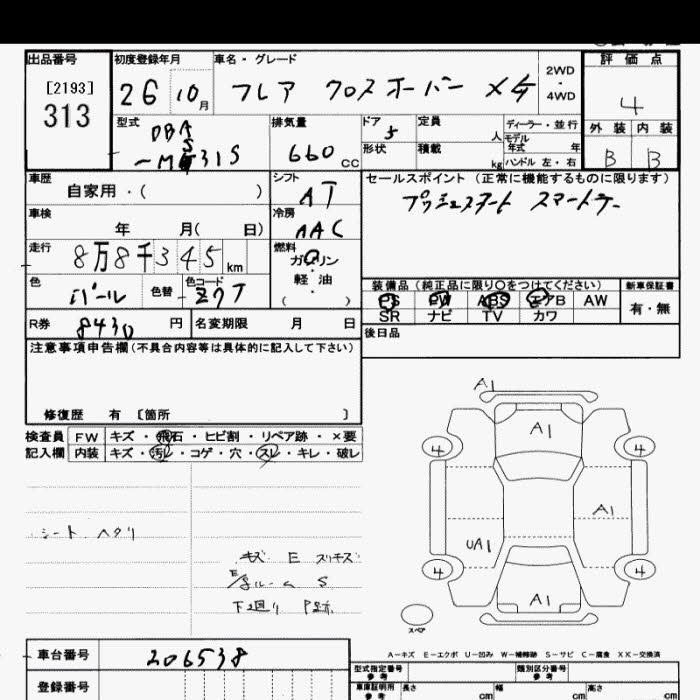 出品番号 初度登録年月 車名・グレード 2WD・4WD 評価点
[2193]
313 26 10月 フレア クロスオーバー 4
型式 DBA 排気量 ドア 5 定員 人 ディーラー・並行 外装 内装
モデル年式 年
形状 積載 kg ハンドル 左・右
MS31S 660cc B B
車歴 自家用・( ) シフト AT セールスポイント(正常に機能するものに限ります)
プッシュスタート
車検 年 月( 日) 冷房 AAC
走行 8万8千345km 燃料 ガソリン
軽油
( )
色 パール 色替 色コード ZVT
装備品(純正品に限り○をつけてください) 新車保証書
PS PW ABS エアB AW 有・無
SR ナビ TV カワ
R券 8430円 名変期限 月 日 後日品
注意事項申告欄(不具合内容等は具体的に記入して下さい)
修復歴 有 [箇所 ]
検査員 FW キズ・飛石・ヒビ割・リペア跡・×要
記入欄 内装 キズ・汚れ・コゲ・穴・スレ・キレ・破レ
シート ヘタリ
キズ E スリキズ
S
下廻り P跡
A1
A1
4 4
A1
UA1
4 4
A1
スペア
A-キズ E-エクボ U-凹み W-補修跡 S-サビ C-腐食 XX-交換済
車台番号 206538
型式指定番号 参考 類別区分番号 参考
登録番号 車庫証明用 参考 長さ cm 幅 cm 高さ cm